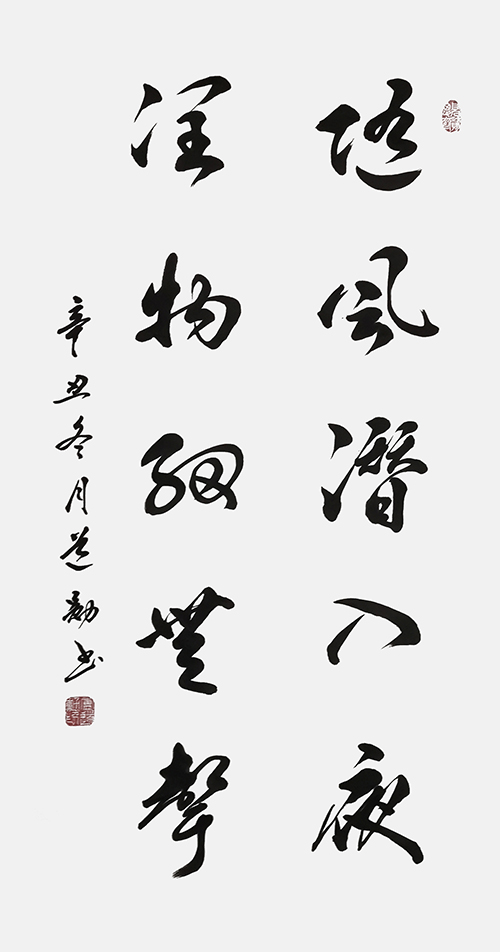 随风潜入夜
润物细无声
辛丑冬月道勋书